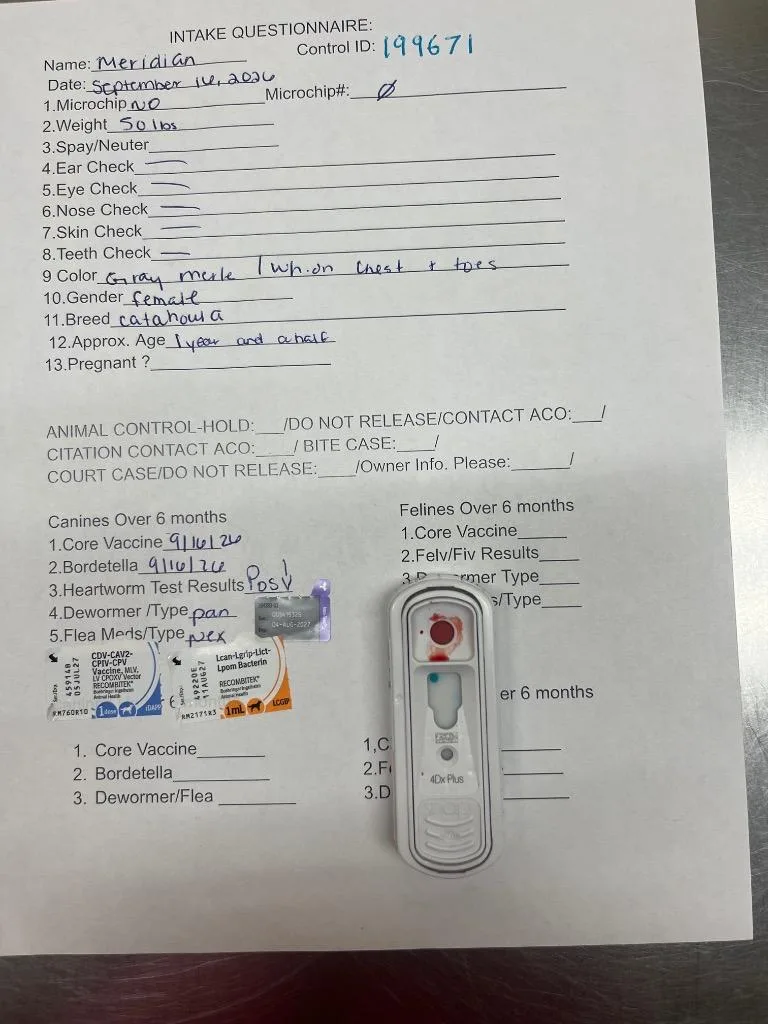 INTAKE QUESTIONNAIRE:
Name: Meridian Control ID: 199671
Date: September 16, 2026
1.Microchip NO Microchip#: Ø
2.Weight 50 lbs
3.Spay/Neuter
4.Ear Check —
5.Eye Check —
6.Nose Check —
7.Skin Check —
8.Teeth Check —
9 Color Gray merle / wh. on chest + toes
10.Gender female
11.Breed catahoula
12.Approx. Age 1 year and a half
13.Pregnant ?
ANIMAL CONTROL-HOLD:___/DO NOT RELEASE/CONTACT ACO:___/
CITATION CONTACT ACO:____/ BITE CASE:____/
COURT CASE/DO NOT RELEASE:____/Owner Info. Please:______/
Canines Over 6 months
1.Core Vaccine 9/16/26
2.Bordetella 9/16/26
3.Heartworm Test Results Pos
4.Dewormer /Type pan
5.Flea Meds/Type nex
04-AUG-2027
CDV-CAV2-
CPIV-CPV
Vaccine, MLV,
LV CPOXV Vector
RECOMBITEK®
Boehringer Ingelheim
Animal Health
45914B
05JUL27
RM760R10 1 dose
Lcan-Lgrip-Lict-
Lpom Bacterin
RECOMBITEK®
Boehringer Ingelheim
Animal Health
49220E
11AUG27
RM2171R3 1mL LCGIP
1. Core Vaccine
2. Bordetella
3. Dewormer/Flea
Felines Over 6 months
1.Core Vaccine
2.Felv/Fiv Results
3.D rmer Type
s/Type
er 6 months
1,C
2.F
3.D
4Dx Plus